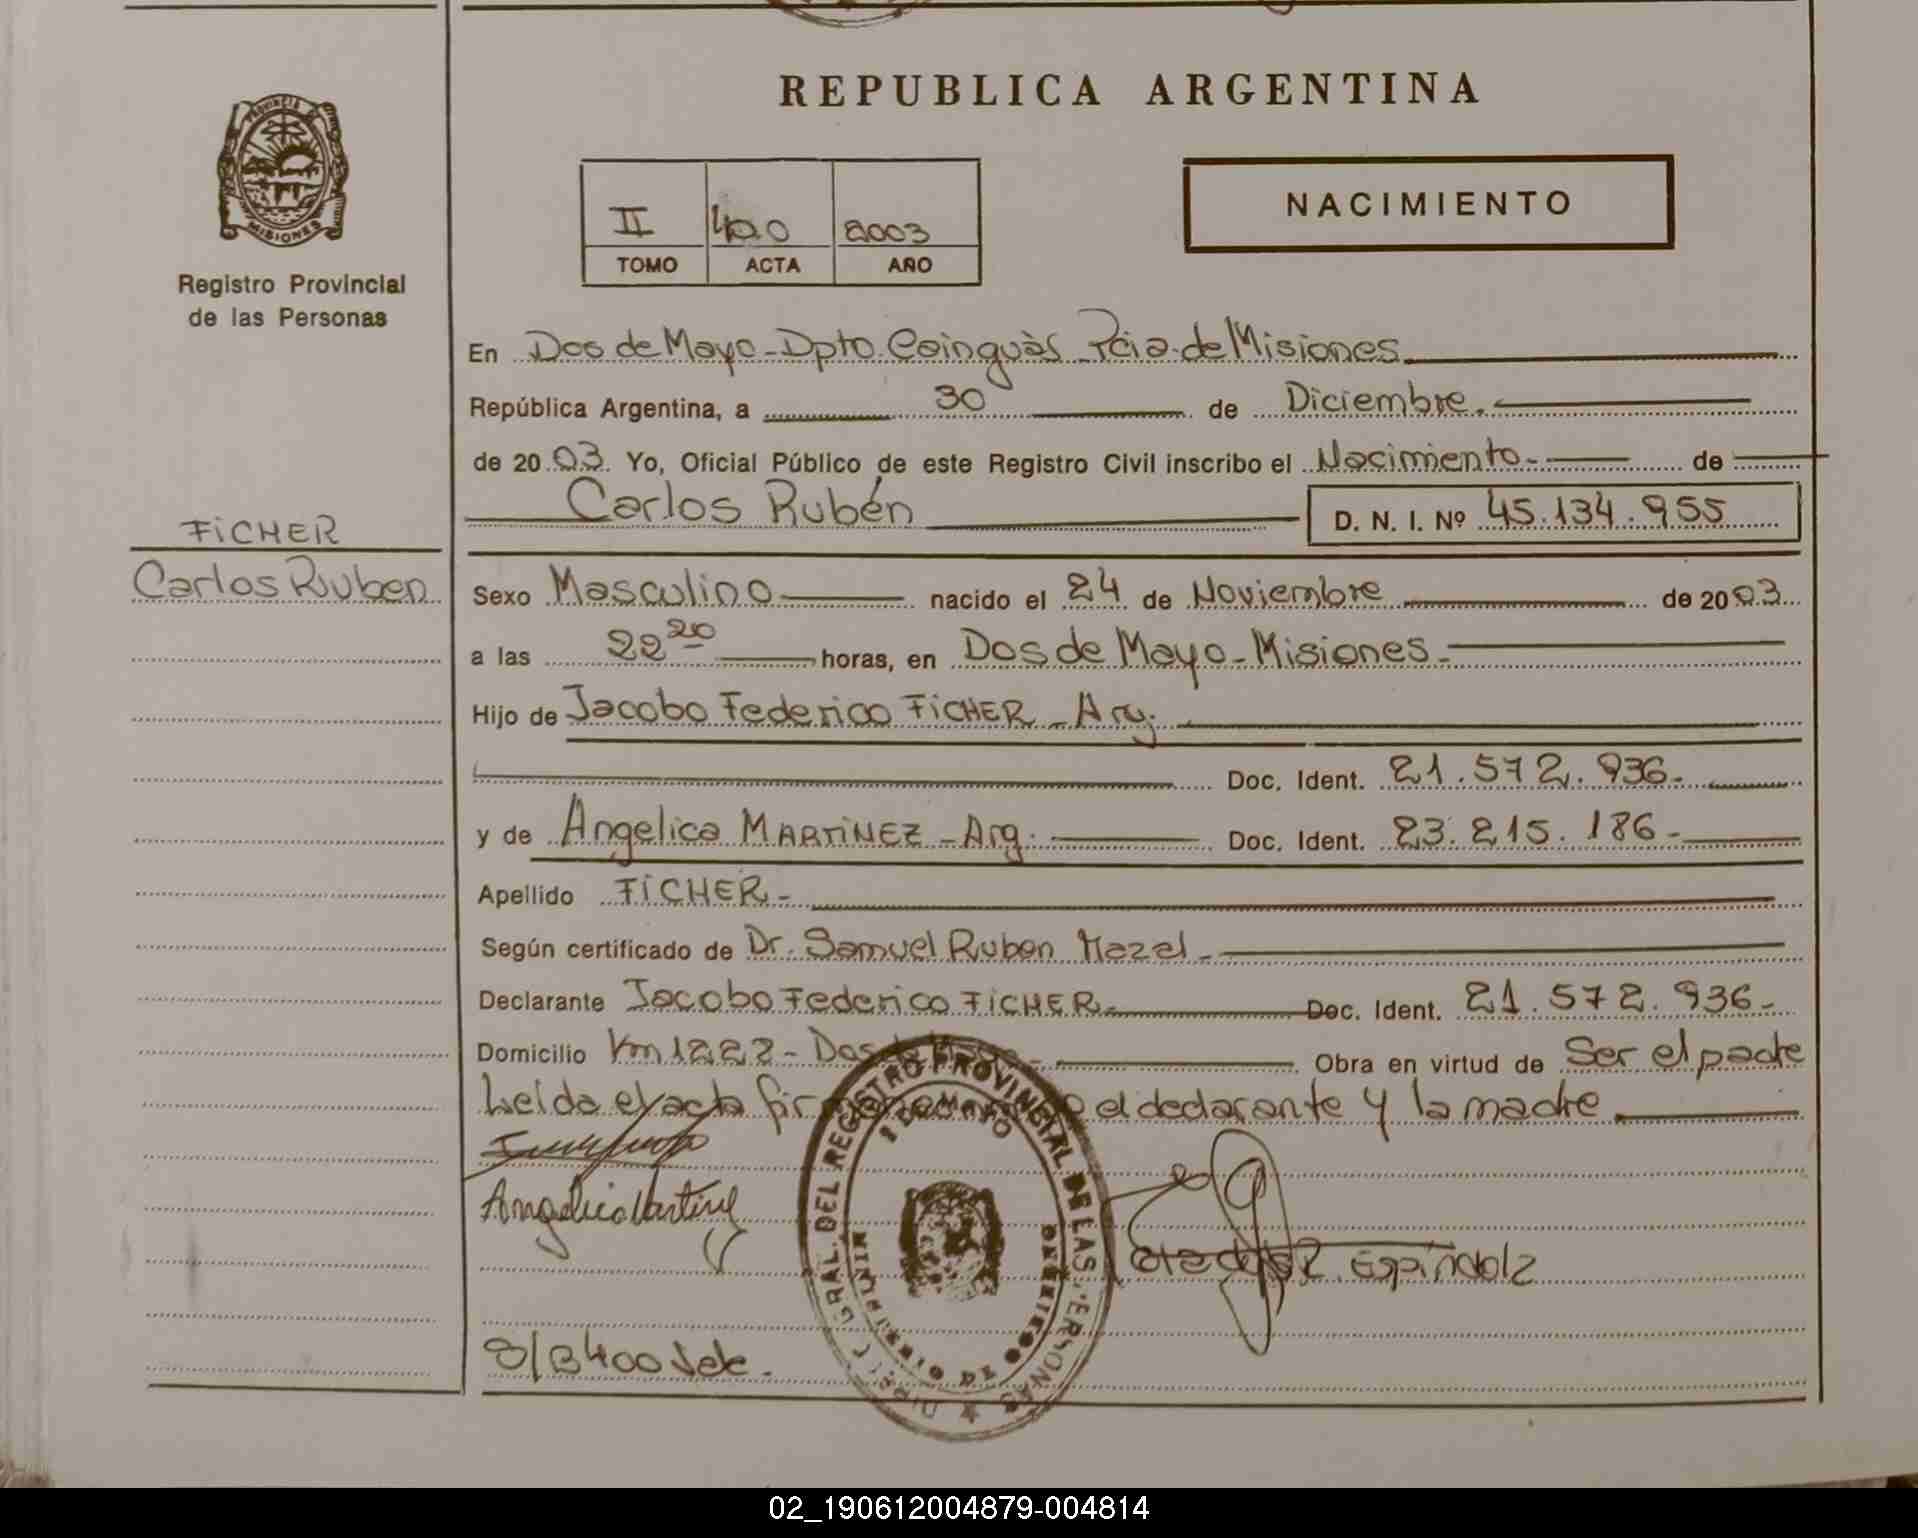 REPUBLICA ARGENTINA
PROVINCIA DE
MISIONES
Registro Provincial
de las Personas
II 400 2003
TOMO ACTA AÑO
NACIMIENTO
En Dos de Mayo - Dpto. Cainguàs Pcia. de Misiones
República Argentina, a 30 de Diciembre.
de 2003. Yo, Oficial Público de este Registro Civil inscribo el Nacimiento - de
Carlos Rubén D. N. I. Nº 45.134.955
FICHER
Carlos Ruben
Sexo Masculino nacido el 24 de Noviembre de 2003
a las 22 20 horas, en Dos de Mayo - Misiones -
Hijo de Jacobo Federico FICHER - Arg.
Doc. Ident. 21.572.936-
y de Angelica MARTINEZ - Arg. Doc. Ident. 23.215.186-
Apellido FICHER -
Según certificado de Dr. Samuel Ruben Mazal -
Declarante Jacobo Federico FICHER - Doc. Ident. 21.572.936-
Domicilio Km 1222 - Dos de Mayo - Obra en virtud de Ser el padre
Leida el acta el declarante y la madre
Angelica Martinez
Espindola
S/B 400 Vale.
GRAL. DEL REGISTRO PROVINCIAL DE LAS PERSONAS
2 DE MAYO
02_190612004879-004814